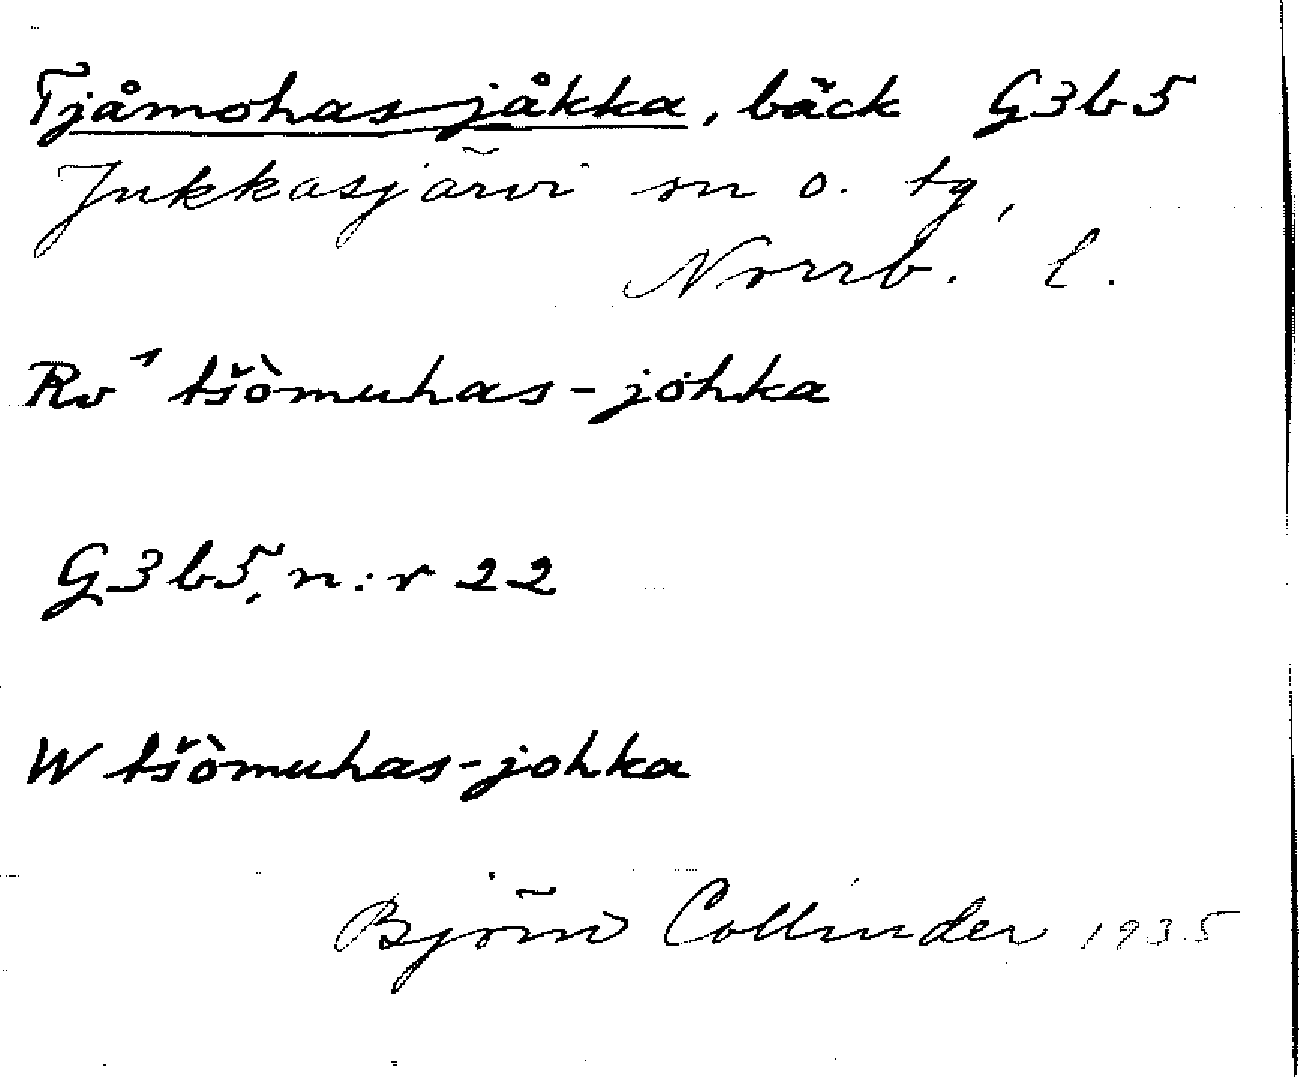 Tjåmohasjåkka, bäck G3b5
Jukkasjärvi sn o. tg,
Norrb. l.
Rv¹ tšòmuhas-johka
G3b5, n:r 22
W tšòmuhas-johka
Björn Collinder 1935